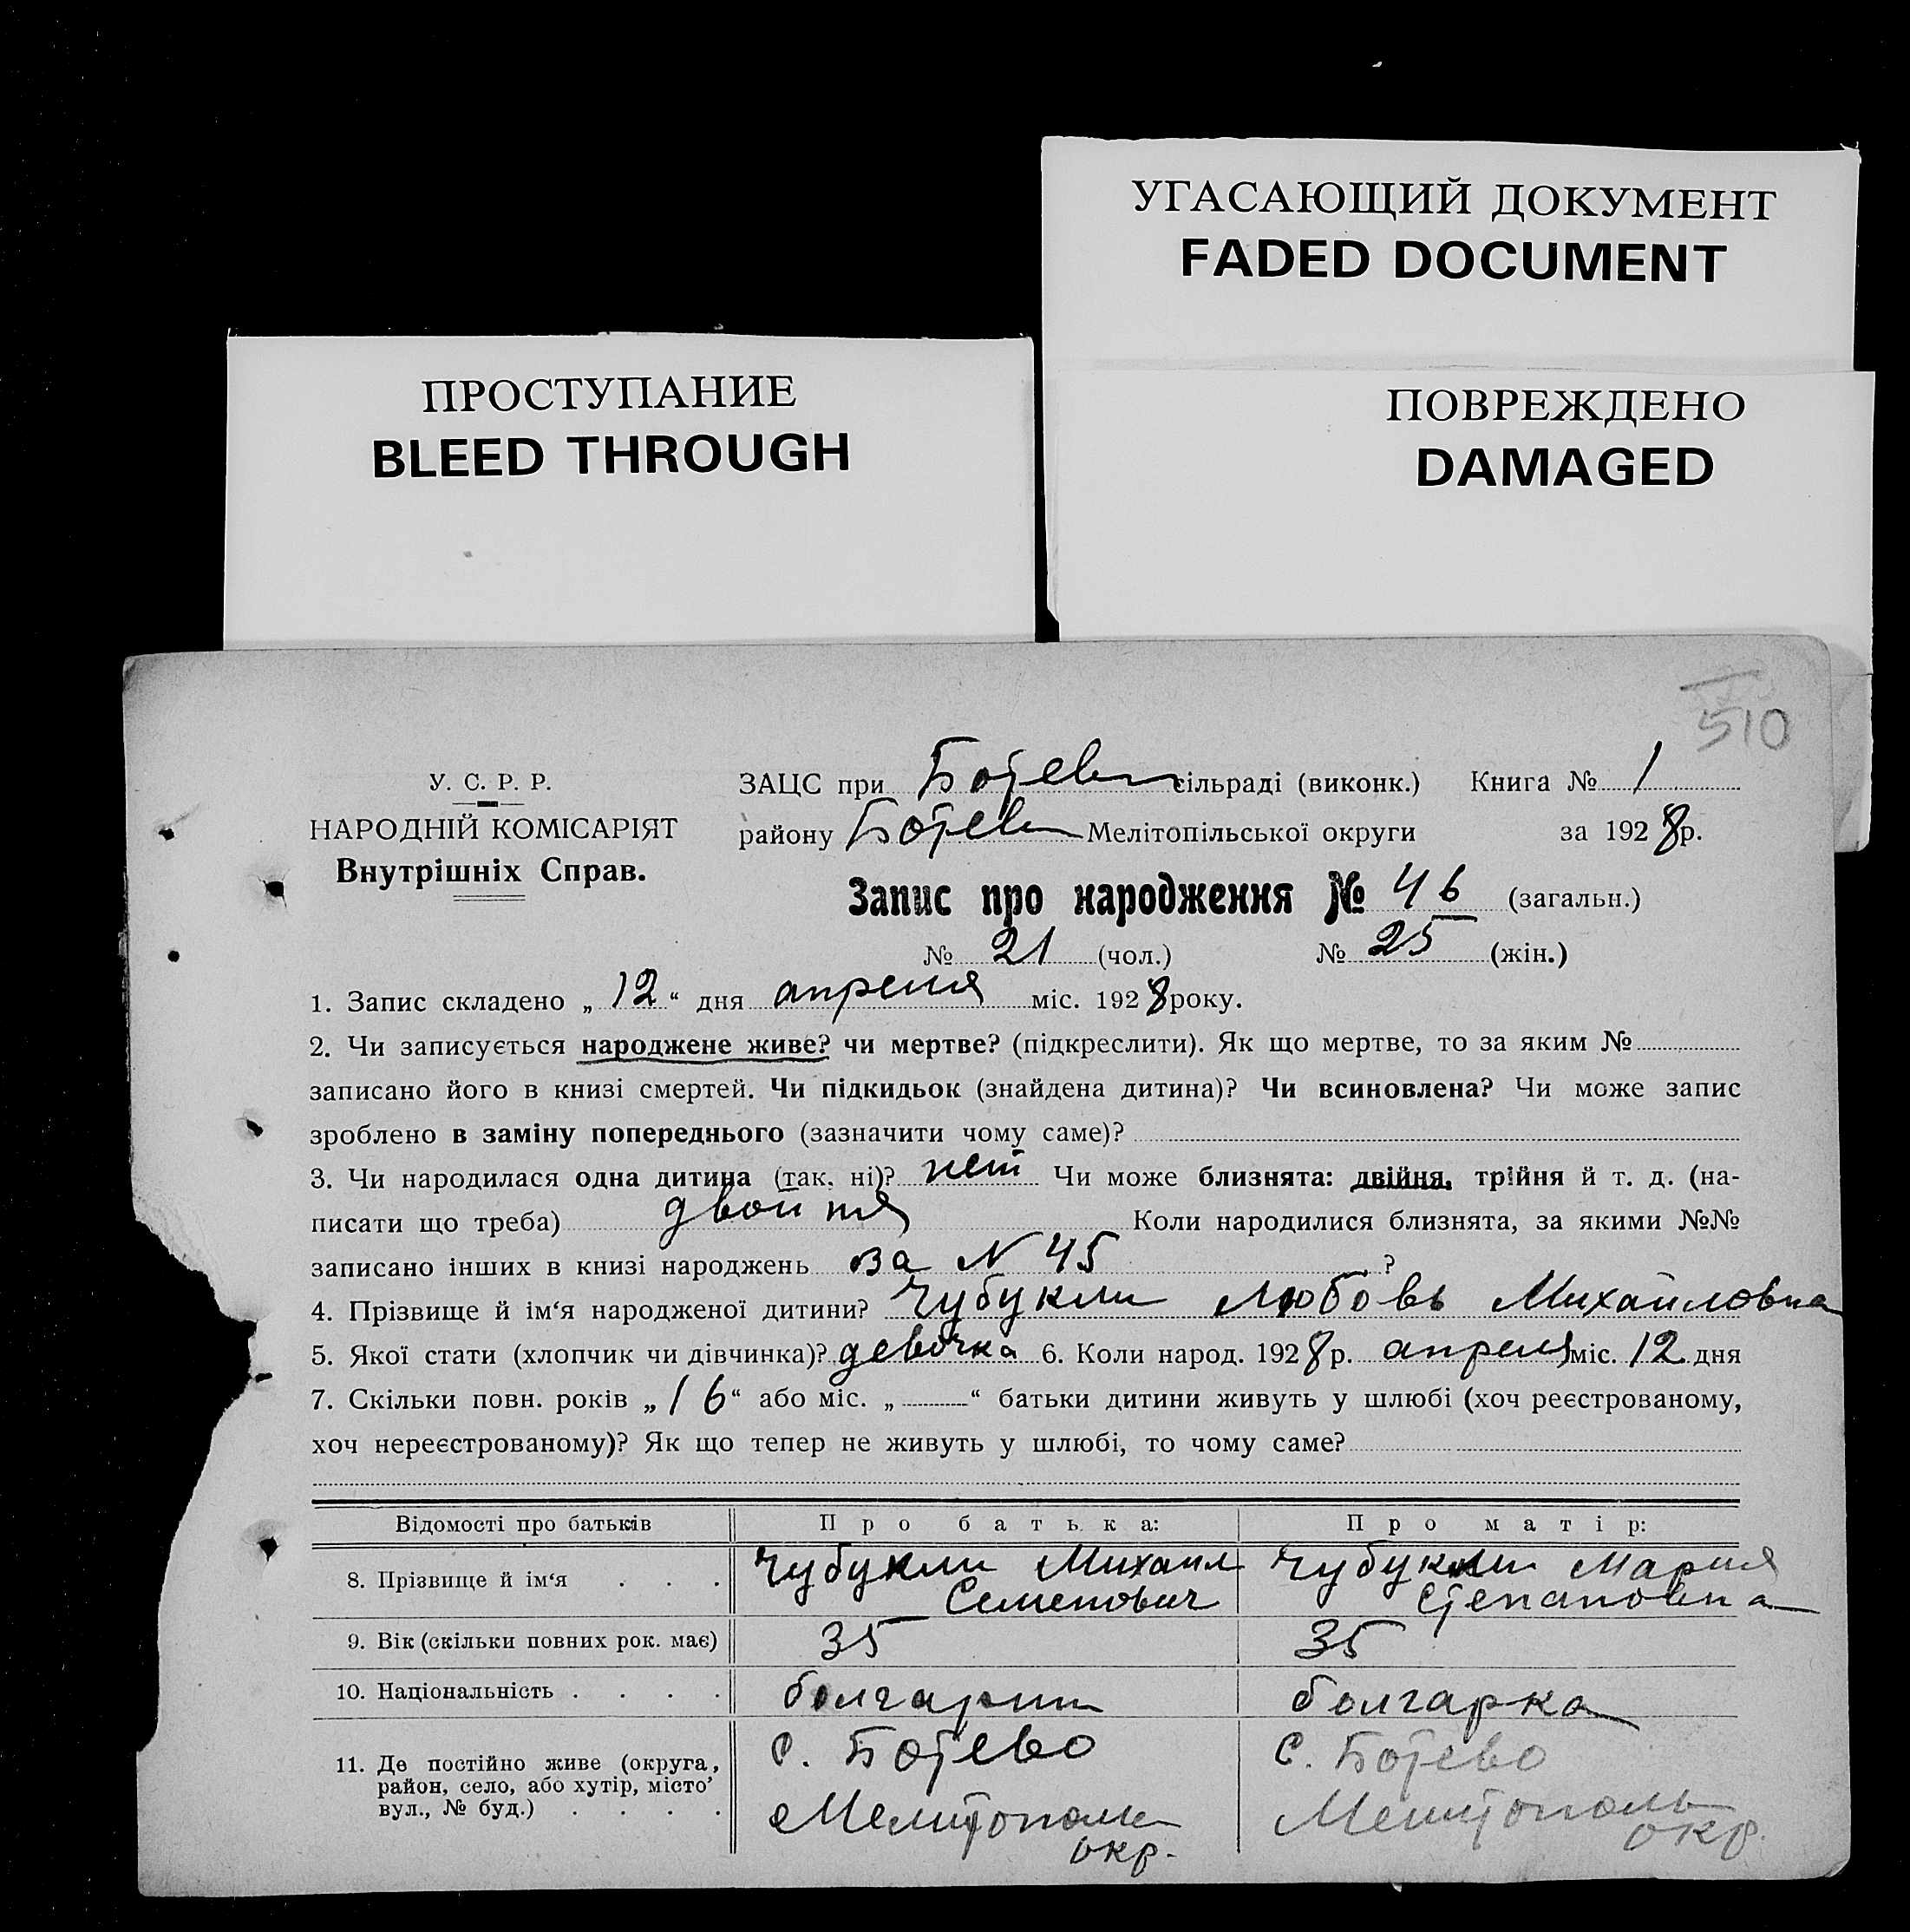 УГАСАЮЩИЙ ДОКУМЕНТ
FADED DOCUMENT
ПРОСТУПАНИЕ
BLEED THROUGH
ПОВРЕЖДЕНО
DAMAGED
510
У. С. Р. Р.
НАРОДНІЙ КОМІСАРІЯТ
Внутрішніх Справ.
ЗАЦС при Ботев сільраді (виконк.) Книга № 1
району Ботев Мелітопільської округи за 1928 р.
Запис про народження № 46 (загальн.)
№ 21 (чол.) № 25 (жін.)
1. Запис складено „12“ дня апреля міс. 1928 року.
2. Чи записується народжене живе? чи мертве? (підкреслити). Як що мертве, то за яким №
записано його в книзі смертей. Чи підкидьок (знайдена дитина)? Чи всиновлена? Чи може запис
зроблено в заміну попереднього (зазначити чому саме)?
3. Чи народилася одна дитина (так, ні)? нет Чи може близнята: двійня, трійня й т. д. (на-
писати що треба) двойня Коли народилися близнята, за якими №№
записано інших в книзі народжень за N 45 ?
4. Прізвище й ім‘я народженої дитини? Чубукли Любовь Михайловна
5. Якої стати (хлопчик чи дівчинка)? девочка 6. Коли народ. 1928 р. апреля міс. 12 дня
7. Скільки повн. років „16“ або міс. „ “ батьки дитини живуть у шлюбі (хоч реєстрованому,
хоч нереєстрованому)? Як що тепер не живуть у шлюбі, то чому саме?
Відомості про батьків Про батька: Про матір:
8. Прізвище й ім‘я . . . Чубукли Михаил Чубукли Мария
Семенович Степановна
9. Вік (скільки повних рок. має) 35 35
10. Національність . . . . болгарин болгарка
11. Де постійно живе (округа, район, село, або хутір, місто’ вул., № буд.) . . . . с. Ботево с. Ботево
Мелитополь Мелитополь
окр. окр.